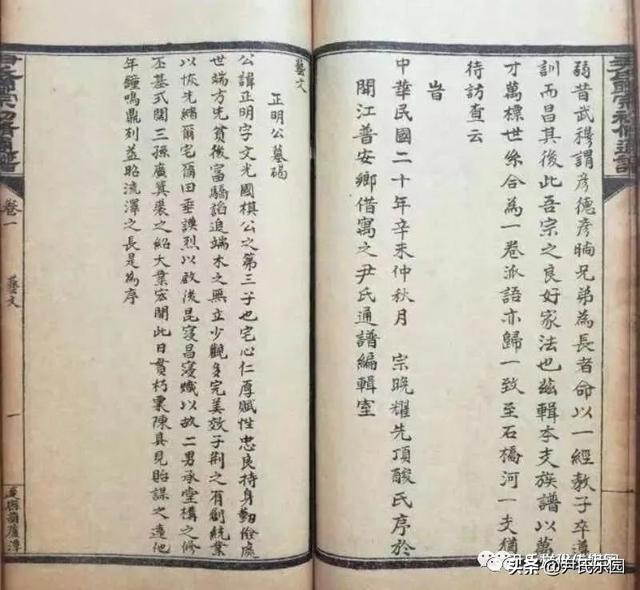 弱昔武穆謂彥德彥暔兄弟為長者命以一經教子卒
訓而昌其後此吾宗之良好家法也茲輯本支族譜以萬
才萬標世系合為一卷派語亦歸一致至石橋河一支猶
待訪查云
旹
中華民國二十年辛未仲秋月 宗晚耀先頂酸氏序於
開江普安鄉借寓之尹氏通譜編輯室
藝文
正明公墓碣
公諱正明字文光國棋公之第三子也宅心仁厚賦性忠良持身勤儉處
世端方先貧後富驕諂追端木之無立少觀多完美效子荊之有創統業
以恢先緒爾宅爾田垂謨烈以啟後昆寖昌寖熾以故二男承堂構之修
丕基式闊三孫廣箕裘之紹大業宏開此日貫朽粟陳具見貽謀之遠他
年鐘鳴鼎列益昭流澤之長是為序
卷一
藝文
一
头条 @尹氏乐园